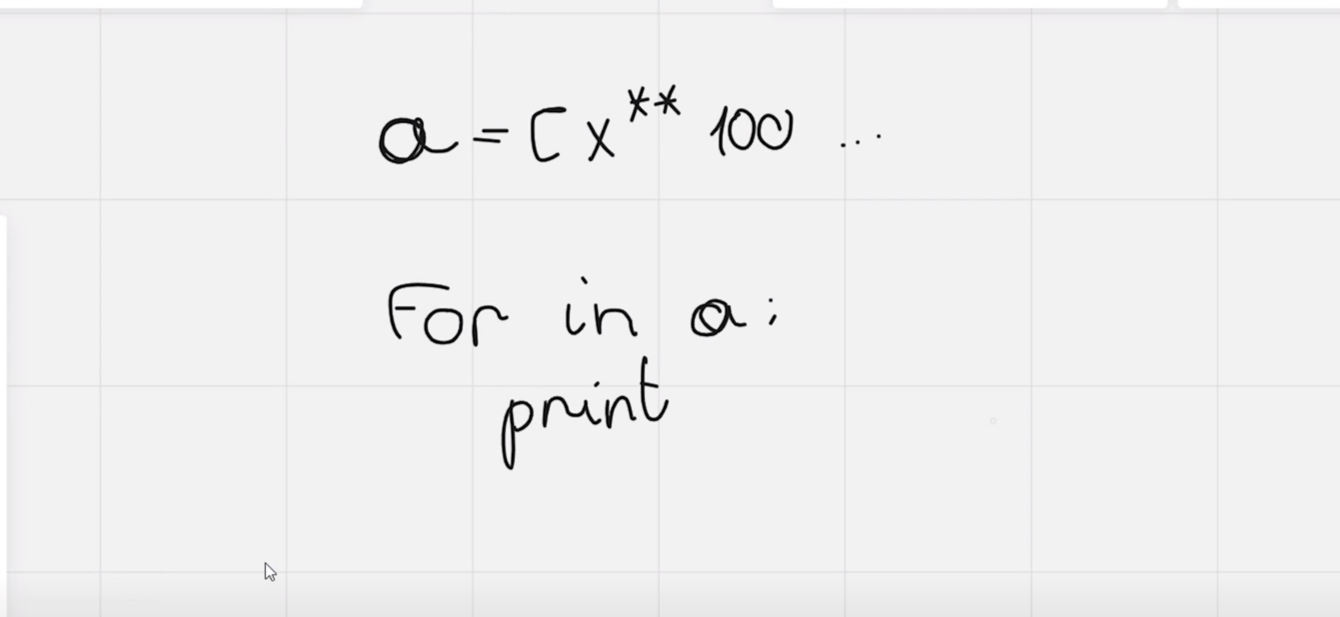 a = [x ** 100 ...
For in a:
print